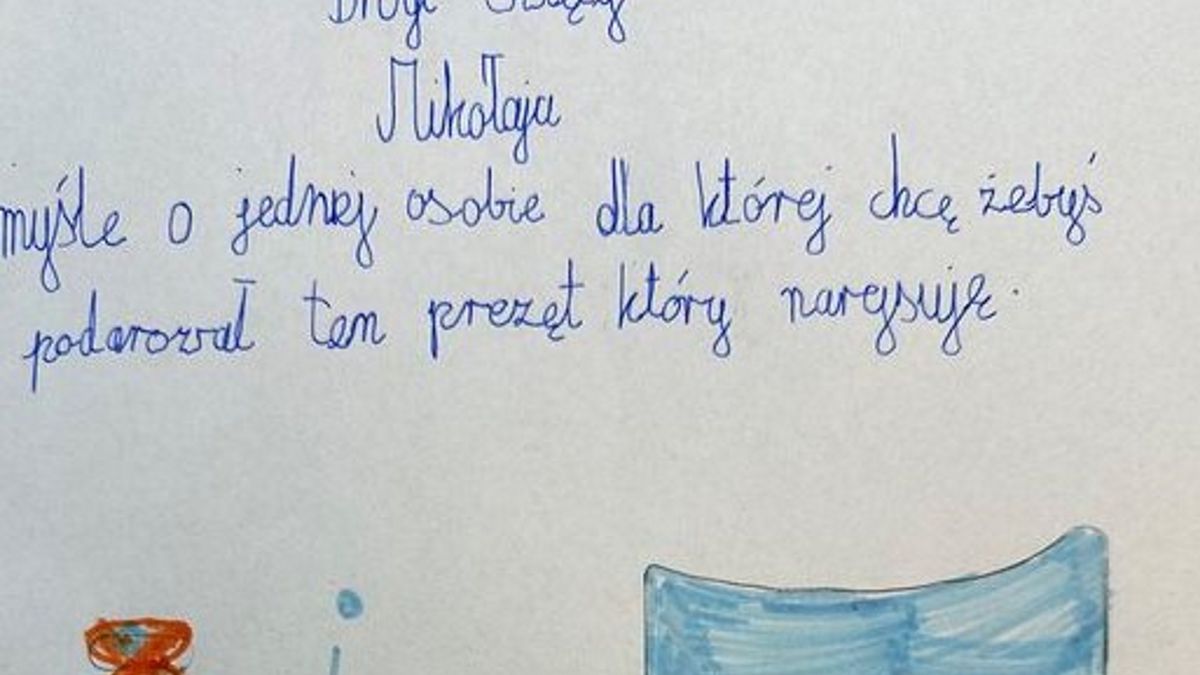 Drogi Święty
Mikołaju
myśle o jednej osobie dla której chcę żebyś
podarował ten prezęt który narysuję.
i